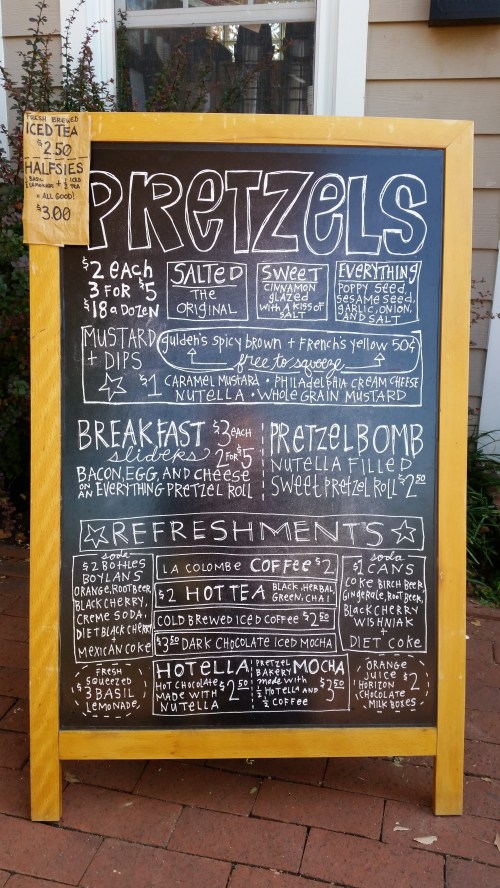 FRESH BREWED
ICED TEA
$2.50
HALFSIES
½ BASIL LEMONADE + ½ ICED TEA
= ALL GOOD!
$3.00
PRETZELS
$2 each
3 FOR $5
$18 a DOZEN
SALTED
THE
ORIGINAL
SWEET
CINNAMON
glazed
with A KISS of
SALT
EVERYTHING
POPPY SEED,
SESAME SEED,
GARLIC, ONION,
AND SALT
MUSTARD
+ DIPS
gulden's spicy brown + French's yellow 50¢
free to squeeze
$1 CARAMEL MUSTARD • PHILADELPHIA CREAM CHEESE
NUTELLA • WHOLE GRAIN MUSTARD
BREAKFAST $3 EACH
sliders 2 FOR $5
BACON, EGG, AND cheese
ON AN EVERYTHING PRETZEL ROLL
PRETZEL BOMB
NUTELLA FILLED
SWEET PRETZEL ROLL $2.50
REFRESHMENTS
soda
$2 BOTTLES
BOYLANS
ORANGE, ROOT BEER,
BLACK CHERRY,
CREME SODA,
DIET BLACK CHERRY
+
MEXICAN COKE
LA COLOMBE COFFEE $2
$2 HOT TEA BLACK, HERBAL
GREEN, CHAI
COLD BREWED ICED COFFEE $2.50
$3.50 DARK CHOCOLATE ICED MOCHA
soda
$1 CANS
COKE, BIRCH BEER,
GINGER ALE, ROOT BEER,
BLACK CHERRY
WISHNIAK
+
DIET COKE
FRESH
SQUEEZED
$3 BASIL
LEMONADE
HOTELLA
HOT CHOCOLATE
MADE WITH
NUTELLA
$2.50
PRETZEL
BAKERY MOCHA
made with
½ HOTELLA AND
½ COFFEE
$3.50
ORANGE
JUICE $2
HORIZON
CHOCOLATE
MILK BOXES